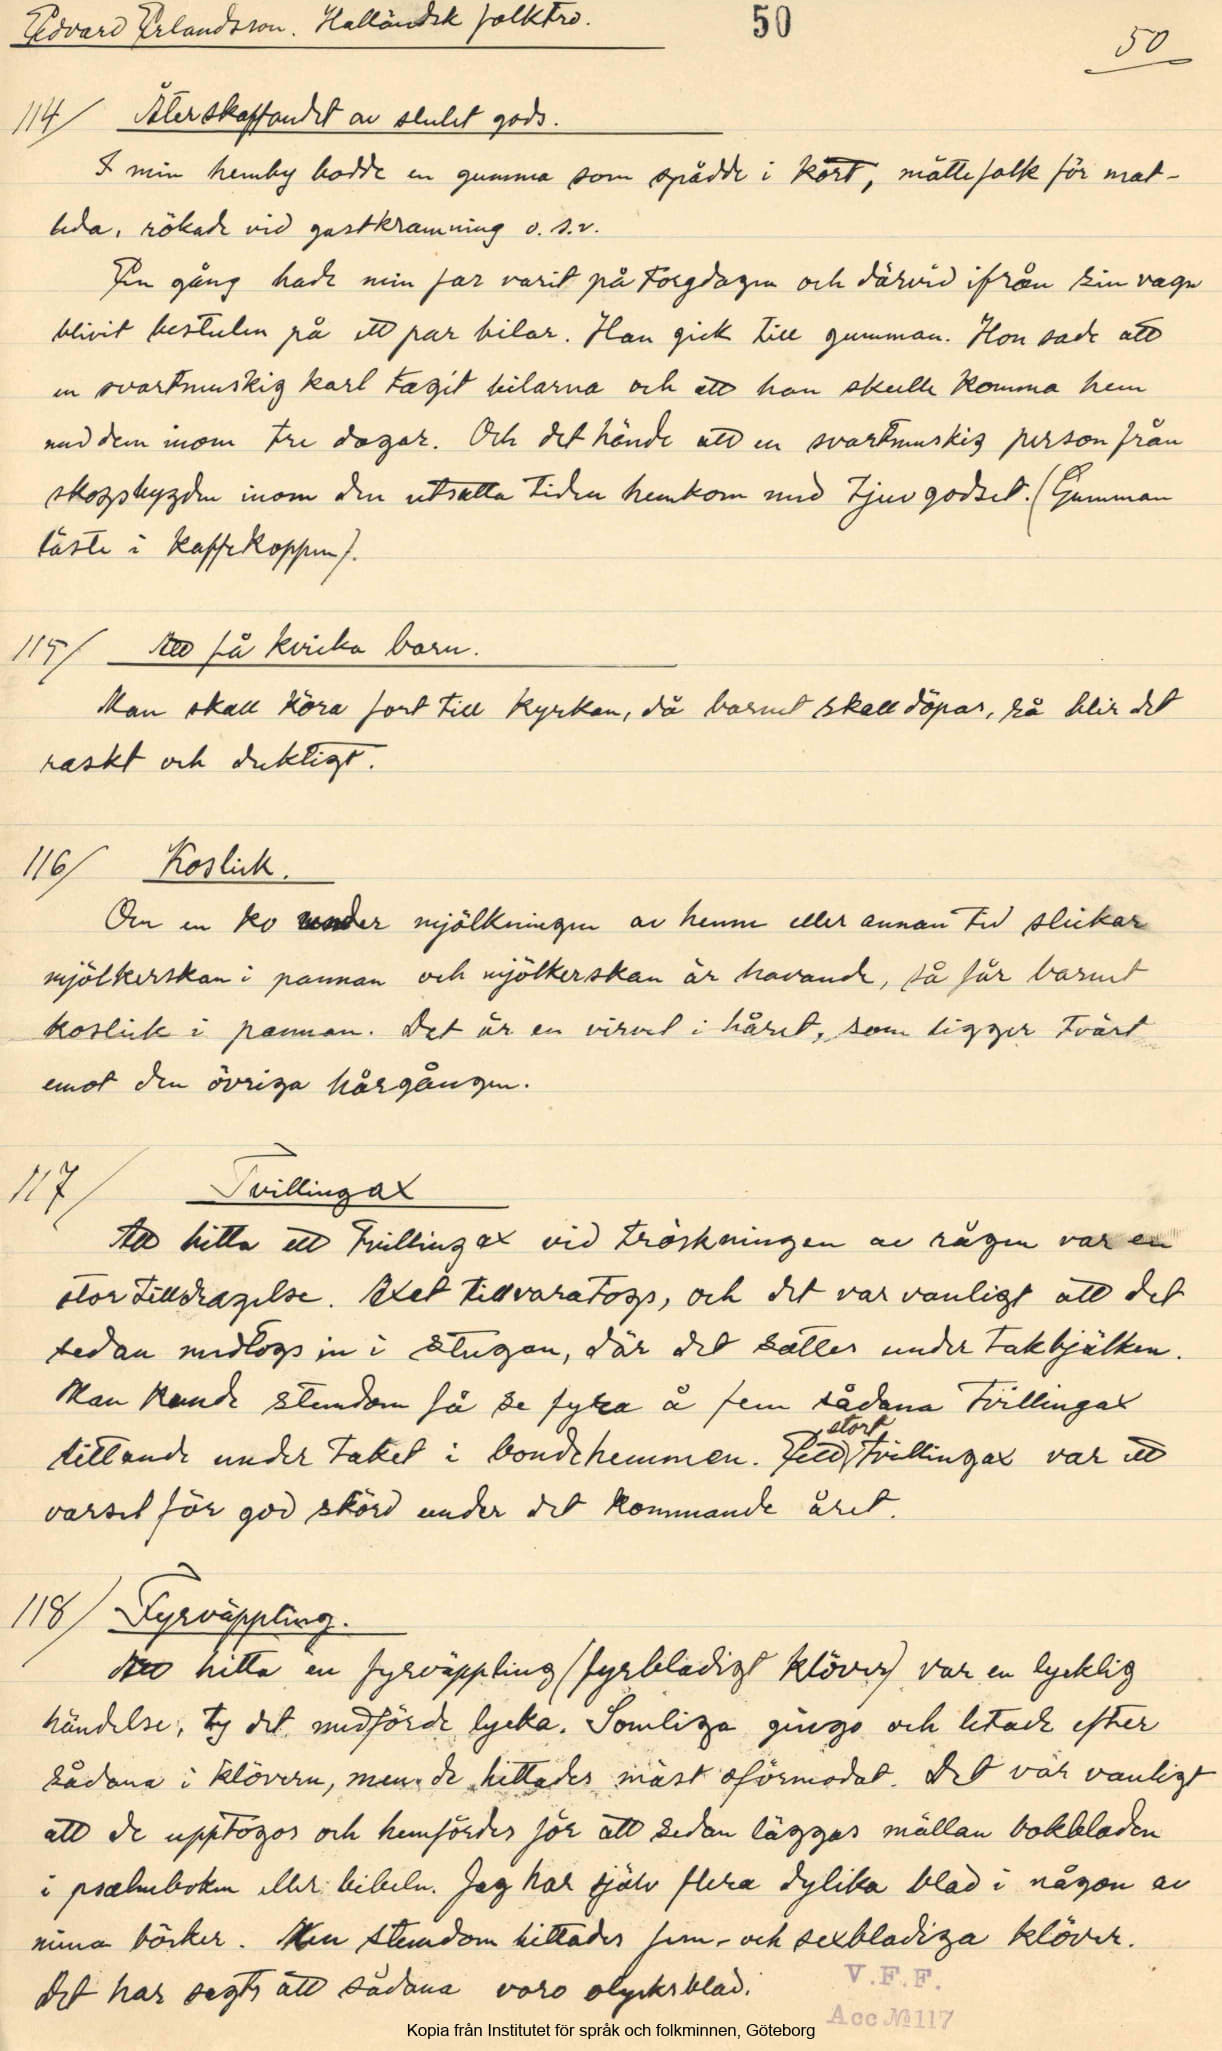 Edvard Erlandsson. Halländsk folktro.
50
50
114/ Återskaffandet av stulet gods.
I min hemby bodde en gumma som spådde i kort, mätte folk för mat-
leda, rökade vid gastkramning o.s.v.
En gång hade min far varit på torgdagen och därvid ifrån sin vagn
blivit bestulen på ett par bilar. Han gick till gumman. Hon sade att
en svartmuskig karl tagit bilarna och att han skulle komma hem
med dem inom tre dagar. Och det hände att en svartmuskig person från
skogsbygden inom den utsatta tiden hemkom med tjuvgodset. (Gumman
läste i kaffekoppen).
115/ Att få kvicka barn.
Man skall köra fort till kyrkan, då barnet skall döpas, så blir det
raskt och duktigt.
116/ Koslick.
Om en ko under mjölkningen av henne eller annan tid slickar
mjölkerskan i pannan och mjölkerskan är havande, så får barnet
koslick i pannan. Det är en virvel i håret, som ligger tvärt
emot den övriga hårgången.
117/ Tvillingax
Att hitta ett tvillingax vid tröskningen av rågen var en
stor tilldragelse. Axet tillvaratogs, och det var vanligt att det
sedan medtogs in i stugan, där det sattes under takbjälken.
Man kunde stundom få se fyra å fem sådana tvillingax
sittande under taket i bondehemmen. Ett stort tvillingax var ett
varsel för god skörd under det kommande året.
118/ Fyrväppling.
Att hitta en fyrväppling (fyrbladigt klöver) var en lycklig
händelse, ty det medförde lycka. Somliga gingo och letade efter
sådana i klövern, men de hittades mäst oförmodat. Det var vanligt
att de upptogos och hemfördes för att sedan läggas mällan bokbladen
i psalmboken eller bibeln. Jag har själv flera dylika blad i någon av
mina böcker. Men stundom hittades fem- och sexbladiga klöver.
Det har sagts att sådana voro olycksblad.
V.F.F.
Acc № 117
Kopia från Institutet för språk och folkminnen, Göteborg